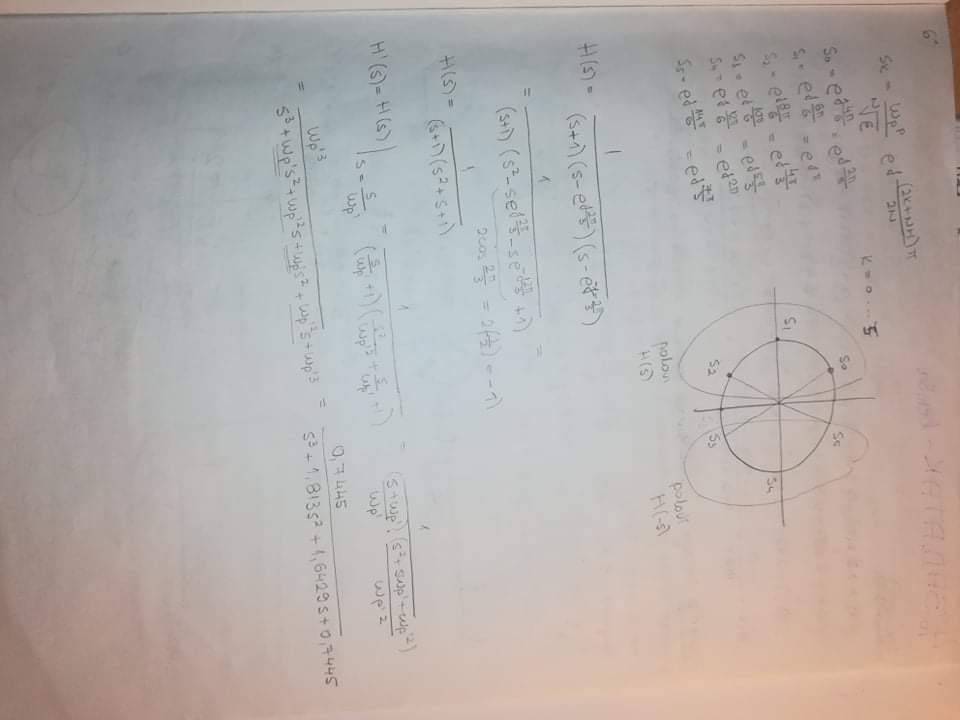 6°
Sk = ωp' / N√ε e^{j (2k+N+1)π / 2N} k = 0 ... 5
S0 = e^{j 4π/6} = e^{j 2π/3}
S1 = e^{j 6π/6} = e^{jπ}
S2 = e^{j 8π/6} = e^{j 4π/3}
S3 = e^{j 10π/6} = e^{j 5π/3}
S4 = e^{j 12π/6} = e^{j 2π}
S5 = e^{j 14π/6} = e^{j 7π/3}
S0
S5
S1
S4
S2
S3
polovi H(s)
polovi H(-s)
H(s) = 1 / (s+1)(s - e^{j 2π/3})(s - e^{-j 2π/3})
= 1 / (s+1)(s² - se^{j 2π/3} - se^{-j 2π/3} + 1) =
2cos 2π/3 = 2(-1/2) = -1)
H(s) = 1 / (s+1)(s²+s+1)
H'(s) = H(s) | s = s/ωp' = 1 / (s/ωp' + 1)(s²/ωp'² + s/ωp' + 1) = 1 / (s+ωp')/ωp' · (s²+sωp'+ωp'²)/ωp'²
= ωp'³ / s³+ωp's²+ωp'²s+ωp's²+ωp'²s+ωp'³ = 0,7445 / s³+1,813s²+1,6429s+0,7445